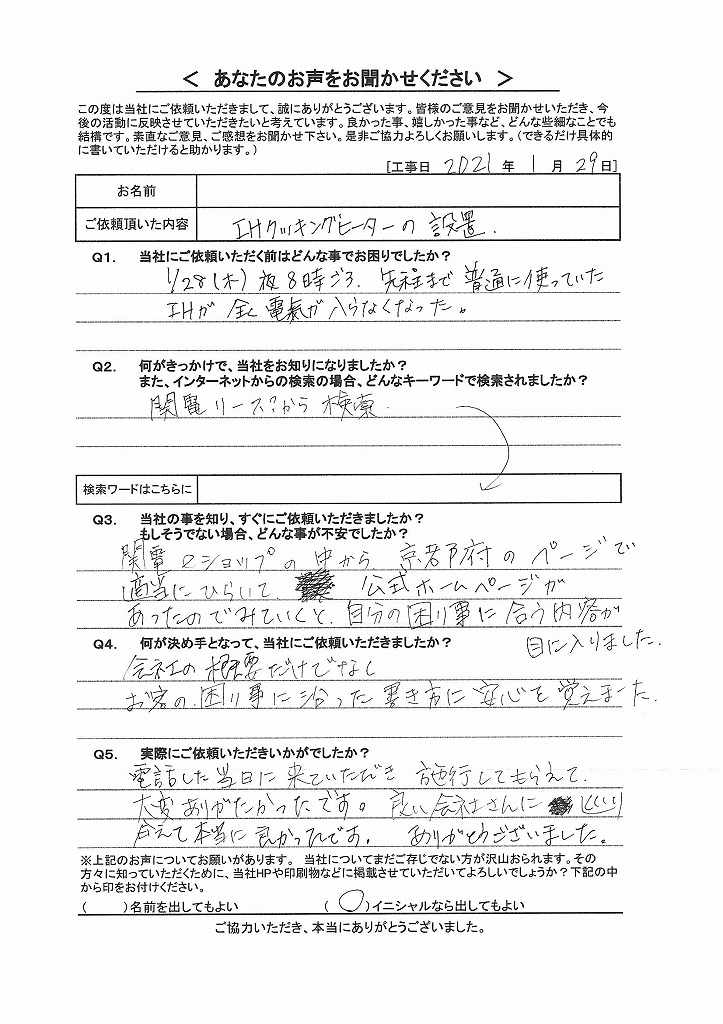 ＜ あなたのお声をお聞かせください ＞
この度は当社にご依頼いただきまして、誠にありがとうございます。皆様のご意見をお聞かせいただき、今
後の活動に反映させていただきたいと考えています。良かった事、嬉しかった事など、どんな些細なことでも
結構です。素直なご意見、ご感想をお聞かせ下さい。是非ご協力よろしくお願いします。（できるだけ具体的
に書いていただけると助かります。）
[工事日 2021 年 1 月 29日]
お名前
ご依頼頂いた内容 IHクッキングヒーターの 設置.
Q1. 当社にご依頼いただく前はどんな事でお困りでしたか？
1/28(木) 夜8時ごろ. 先程まで 普通に使っていた
IHが 全く電氣が入らなくなった。
Q2. 何がきっかけで、当社をお知りになりましたか？
また、インターネットからの検索の場合、どんなキーワードで検索されましたか？
関電リース?から 検索.
検索ワードはこちらに
Q3. 当社の事を知り、すぐにご依頼いただきましたか？
もしそうでない場合、どんな事が不安でしたか？
関電eショップの 中から 京都府の ページで
適当にひらいて. 公式ホームページが
あったのでみていくと. 自分の困り事に合う内容が
目に入りました.
Q4. 何が決め手となって、当社にご依頼いただきましたか？
会社の概要だけでなく
お客の.困り事に沿った書き方に 安心を覚えました.
Q5. 実際にご依頼いただきいかがでしたか？
電話した当日に来ていただき 施行してもらえて.
大変ありがたかったです。良い会社さんに
会えて本当に良かったです. ありがとうございました。
※上記のお声についてお願いがあります。 当社についてまだご存じでない方が沢山おられます。その
方々に知っていただくために、当社HPや印刷物などに掲載させていただいてよろしいでしょうか？下記の中
から印をお付けください。
( )名前を出してもよい ( ○ )イニシャルなら出してもよい
ご協力いただき、本当にありがとうございました。